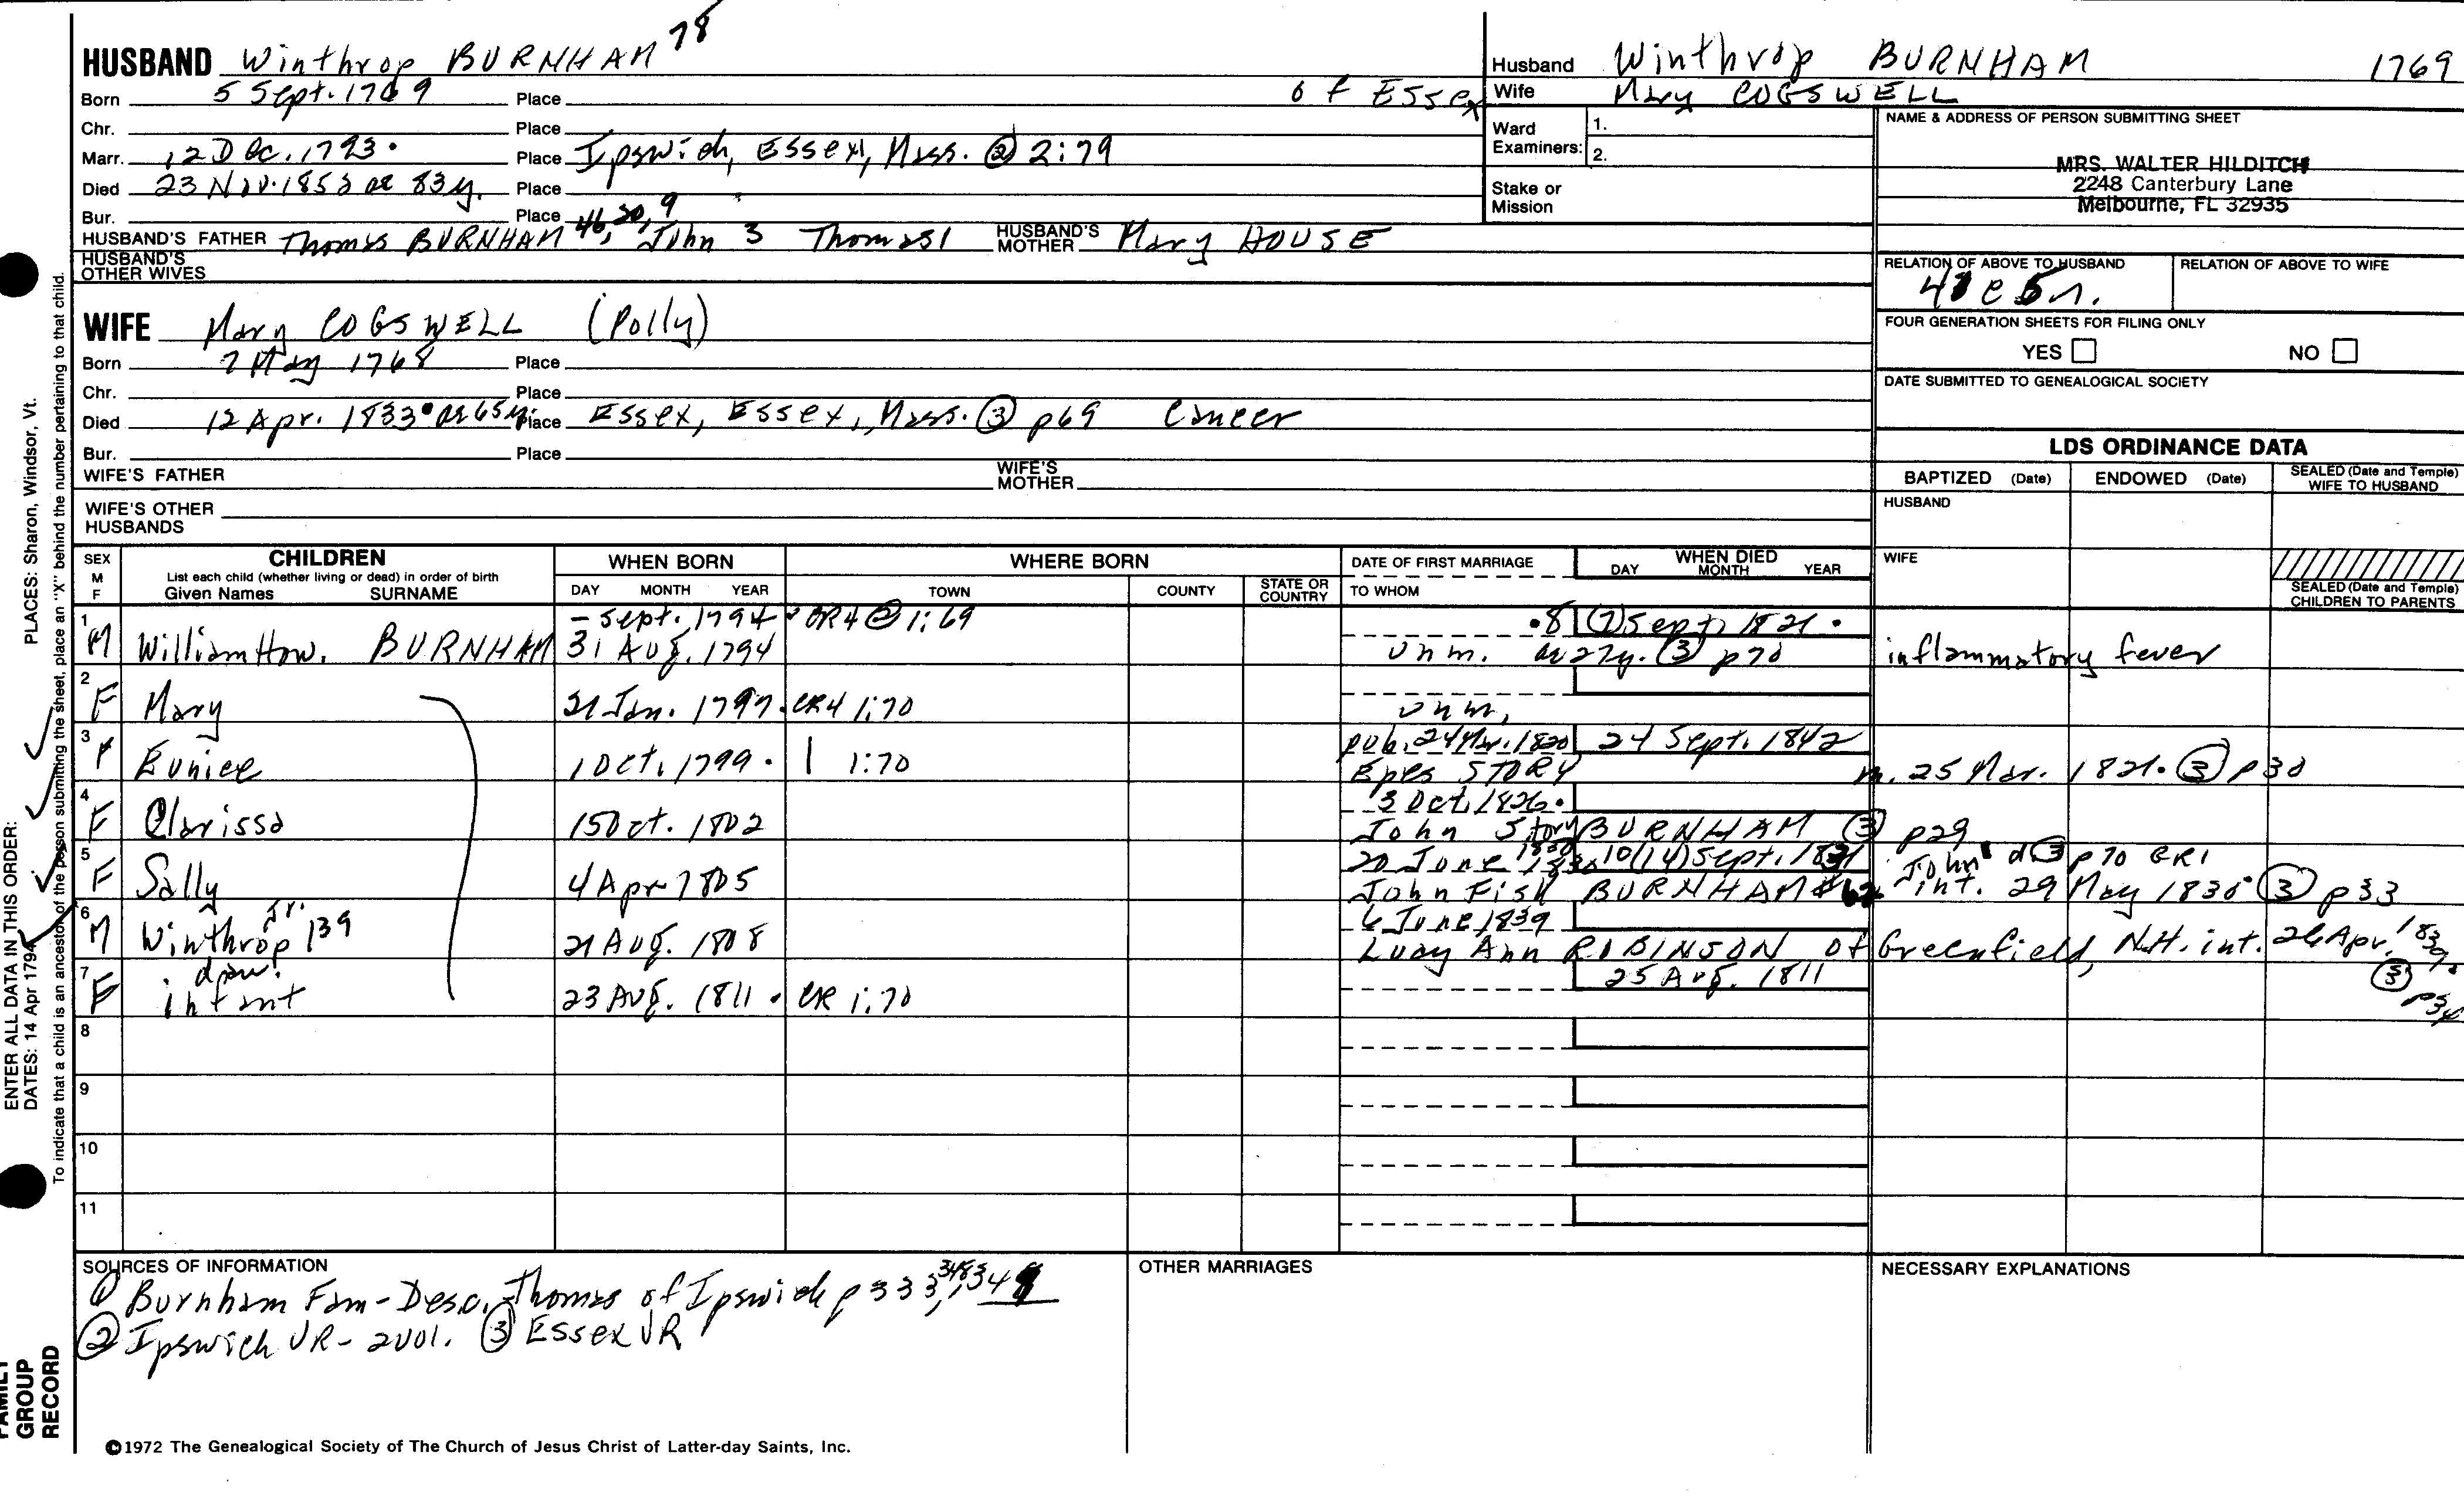 HUSBAND Winthrop BURNHAM 78
Born 5 Sept. 1769 Place of Essex
Chr. Place
Marr. 12 Dec. 1793. Place Ipswich, Essex, Mass. @ 2:79
Died 23 Nov. 1853 ae 83y. Place
Bur. Place
HUSBAND'S FATHER Thomas BURNHAM 46, 20, 9 John 3 Thomas 1 HUSBAND'S MOTHER Mary HOUSE
HUSBAND'S OTHER WIVES
WIFE Mary COGSWELL (Polly)
Born 7 May 1768 Place
Chr. Place
Died 12 Apr. 1833 ae 65y. Place Essex, Essex, Mass. (3) p69 Cancer
Bur. Place
WIFE'S FATHER WIFE'S MOTHER
WIFE'S OTHER HUSBANDS
Husband Winthrop BURNHAM 1769
Wife Mary COGSWELL
Ward Examiners: 1. 2.
Stake or Mission
NAME & ADDRESS OF PERSON SUBMITTING SHEET
MRS. WALTER HILDITCH
2248 Canterbury Lane
Melbourne, FL 32935
RELATION OF ABOVE TO HUSBAND RELATION OF ABOVE TO WIFE
FOUR GENERATION SHEETS FOR FILING ONLY
YES NO
DATE SUBMITTED TO GENEALOGICAL SOCIETY
LDS ORDINANCE DATA
BAPTIZED (Date) ENDOWED (Date) SEALED (Date and Temple) WIFE TO HUSBAND
HUSBAND
WIFE
SEALED (Date and Temple) CHILDREN TO PARENTS
SEX M F
CHILDREN
List each child (whether living or dead) in order of birth
Given Names SURNAME
WHEN BORN DAY MONTH YEAR
WHERE BORN TOWN COUNTY STATE OR COUNTRY
DATE OF FIRST MARRIAGE TO WHOM
WHEN DIED DAY MONTH YEAR
- Sept. 1794 CR4 @ 1:69 8 (7) Sept. 1821.
1 M William How. BURNHAM 31 Aug. 1794 unm. ae 27y. (3) p70 inflammatory fever
2 F Mary 21 Jan. 1797. CR4 1:70 unm.
pub. 24 Mar. 1820 24 Sept. 1842
3 F Eunice 1 Oct. 1799. 1:70 Epes STORY m. 25 Mar. 1821. (3) p30
3 Oct. 1826.
4 F Clarissa 15 Oct. 1802 John Story BURNHAM (3) p29
20 June 1830 10 (14) Sept. 1831 John d (3) p70 GR1
5 F Sally 4 Apr 1805 John Fisk BURNHAM int. 29 May 1830 (3) p33
6 June 1839
6 M Winthrop Jr. 139 21 Aug. 1808 Lucy Ann ROBINSON of Greenfield, N.H. int. 26 Apr. 1839. (3) p34
25 Aug. 1811
7 F infant dau. 23 Aug. 1811. CR 1:70
8
9
10
11
SOURCES OF INFORMATION
(1) Burnham Fam - Desc. Thomas of Ipswich p 333, 3483, 348
(2) Ipswich VR - 2 vol. (3) Essex VR
OTHER MARRIAGES
NECESSARY EXPLANATIONS
©1972 The Genealogical Society of The Church of Jesus Christ of Latter-day Saints, Inc.
FAMILY GROUP RECORD
ENTER ALL DATA IN THIS ORDER: PLACES: Sharon, Windsor, Vt.
DATES: 14 Apr 1794
To indicate that a child is an ancestor of the person submitting the sheet, place an "X" behind the number pertaining to that child.